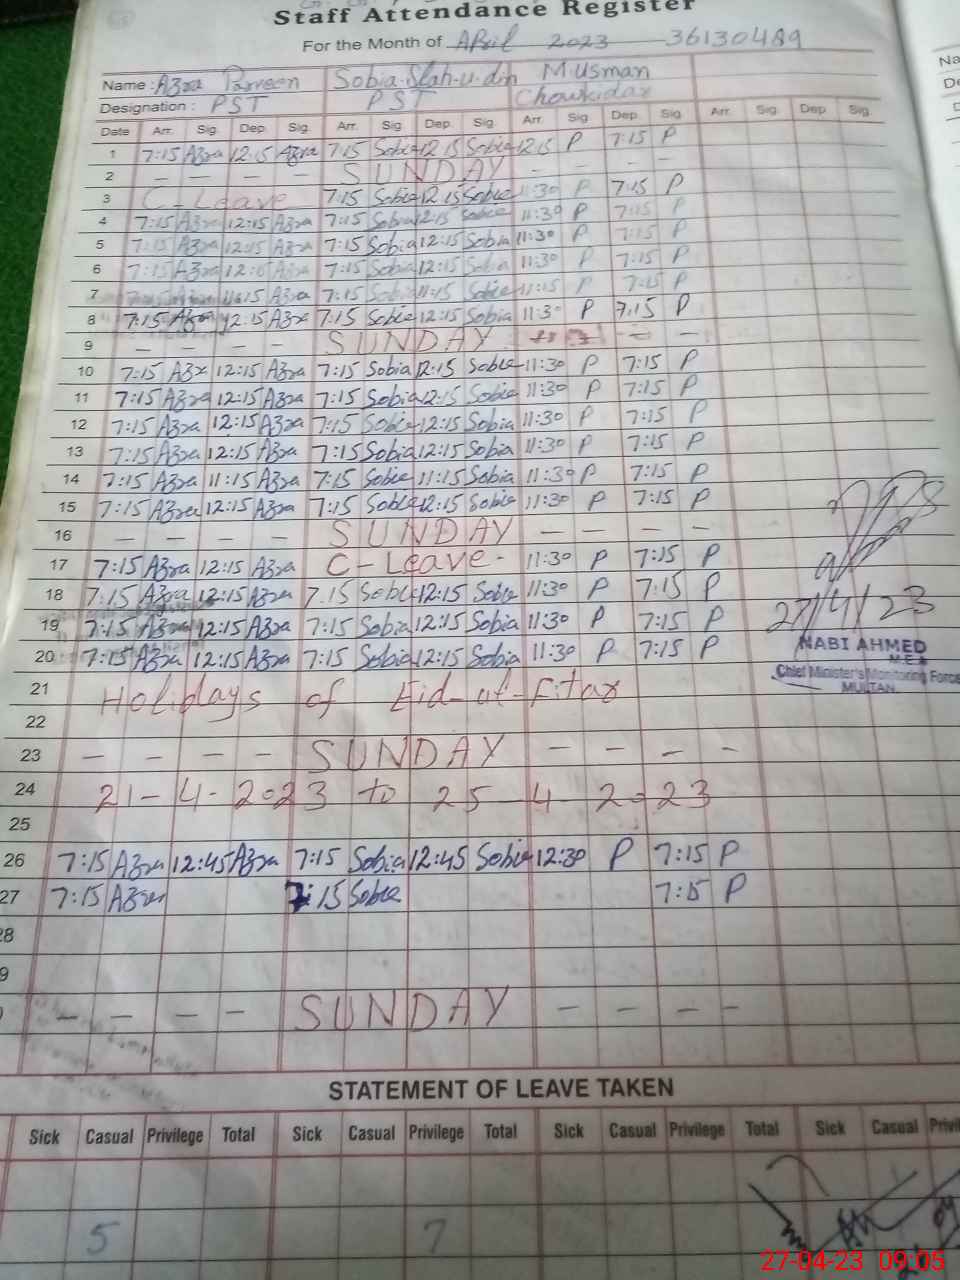 Staff Attendance Register
For the Month of APril 2023 36130489
Name : Azra Parveen Sobia Slah-u-din M.Usman
Designation : PST PST Chowkidar
Date Arr. Sig. Dep. Sig. Arr. Sig. Dep. Sig. Arr. Sig. Dep. Sig. Arr. Sig. Dep. Sig.
1 7:15 Azra 12:15 Azra 7:15 Sobia 12:15 Sobia 12:15 P 7:15 P
2 — — — — SUNDAY — — — —
3 C-Leave 7:15 Sobia 12:15 Sobia 11:30 P 7:15 P
4 7:15 Azra 12:15 Azra 7:15 Sobia 12:15 Sobia 11:30 P 7:15 P
5 7:15 Azra 12:15 Azra 7:15 Sobia 12:15 Sobia 11:30 P 7:15 P
6 7:15 Azra 12:15 Azra 7:15 Sobia 12:15 Sobia 11:30 P 7:15 P
7 7:15 Azra 11:15 Azra 7:15 Sobia 11:15 Sobia 11:15 P 7:15 P
8 7:15 Azra 12:15 Azra 7:15 Sobia 12:15 Sobia 11:30 P 7:15 P
9 — — — — SUNDAY — —
10 7:15 Azra 12:15 Azra 7:15 Sobia 12:15 Sobia 11:30 P 7:15 P
11 7:15 Azra 12:15 Azra 7:15 Sobia 12:15 Sobia 11:30 P 7:15 P
12 7:15 Azra 12:15 Azra 7:15 Sobia 12:15 Sobia 11:30 P 7:15 P
13 7:15 Azra 12:15 Azra 7:15 Sobia 12:15 Sobia 11:30 P 7:15 P
14 7:15 Azra 11:15 Azra 7:15 Sobia 11:15 Sobia 11:30 P 7:15 P
15 7:15 Azra 12:15 Azra 7:15 Sobia 12:15 Sobia 11:30 P 7:15 P
16 — — — — SUNDAY — — — —
17 7:15 Azra 12:15 Azra C-Leave - 11:30 P 7:15 P
18 7:15 Azra 12:15 Azra 7:15 Sobia 12:15 Sobia 11:30 P 7:15 P
27/4/23
19 7:15 Azra 12:15 Azra 7:15 Sobia 12:15 Sobia 11:30 P 7:15 P
NABI AHMED
20 7:15 Azra 12:15 Azra 7:15 Sobia 12:15 Sobia 11:30 P 7:15 P
M.E.A
Chief Minister's Monitoring Force
MULTAN
21 Holidays of Eid-ul-Fitar
22
23 — — — — SUNDAY — — — —
24 21-4-2023 to 25-4-2023
25
26 7:15 Azra 12:45 Azra 7:15 Sobia 12:45 Sobia 12:30 P 7:15 P
27 7:15 Azra 7:15 Sobia 7:15 P
28
9
— — — — SUNDAY — — — —
STATEMENT OF LEAVE TAKEN
Sick Casual Privilege Total Sick Casual Privilege Total Sick Casual Privilege Total Sick Casual Privi
5 7
27-04-23 09:05